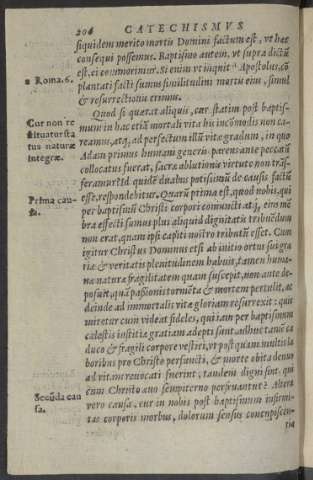 206 CATECHISMVS
siquidem merito mortis Domini factum est, vt hæc
consequi possemus. Baptismo autem, vt supra dictũ
est, ei commorimur. Si enim vt inquit ᵃ Apostolus, cõ
a Roma. 6.
plantati facti sumus similitudini mortis eius, simul
& resurrectionis erimus.
Quod si quærat aliquis, cur statim post baptis-
Cur non re
mum in hac etiã mortali vita his incõmodis non ca-
stituatur sta
reamus, atq; ad perfectum illũ vitæ gradum, in quo
tus naturæ
Adam primus humani generis parens ante peccatũ
integræ.
collocatus fuerat, sacræ ablutionis virtute non trãs-
feramur: Id quidẽ duabus potissimũ de causis factũ
esse, respondebitur. Quarũ prima est, quod nobis, qui
Prima cau-
per baptismũ Christi corpori cõiuncti atq; eius mẽ
sa.
bra effecti sumus plus aliquid dignitatis tribuẽdum
non erat, quam ipsi capiti nostro tributũ esset. Cum
igitur Christus Dominus etsi ab initio ortus sui gra
tiæ & veritatis plenitudinem habuit, tamen huma-
næ naturæ fragilitatem quam suscepit, non ante de-
posuit, quã passionis tormẽta & mortem pertulit, ac
deinde ad immortalis vitæ gloriam resurrexit: quis
miretur cum videat fideles, qui iam per baptismum
cælestis iustitiæ gratiam adepti sunt adhuc tamẽ ca
duco & fragili corpore vestiri, vt postquam multis la
boribus pro Christo perfuncti, & morte obita denuo
ad vitam reuocati fuerint, tandem digni sint, qui
cum Christo æuo sempiterno perfruantur? Altera
Secũda cau
vero causa, cur in nobis post baptismum infirmi-
sa.
tas corporis morbus, dolorum sensus concupiscen-
tia